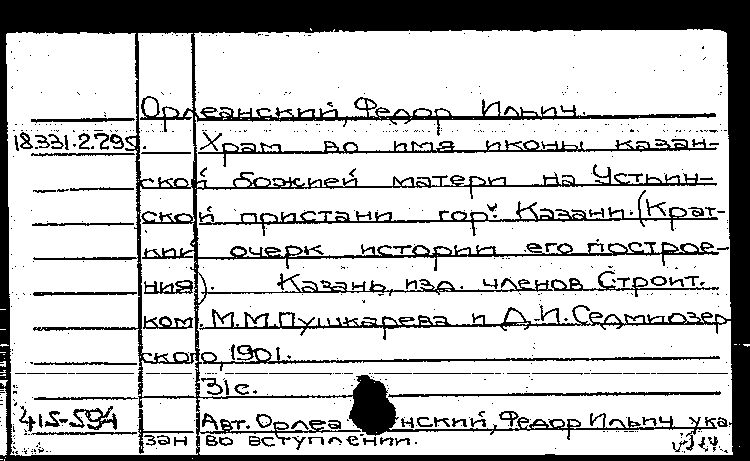 Орлеанский, Федор Ильич.
18.331.2.295. Храм во имя иконы казан-
ской божией матери на Устьин-
ской пристани гор. Казани. (Крат-
кий очерк истории его построе-
ния). Казань, изд. членов Строит.
ком. М.М.Пушкарева и Д.И.Седмиозер-
ского, 1901.
31с.
415-594 Авт. Орлеанский, Федор Ильич ука-
зан во вступлении.